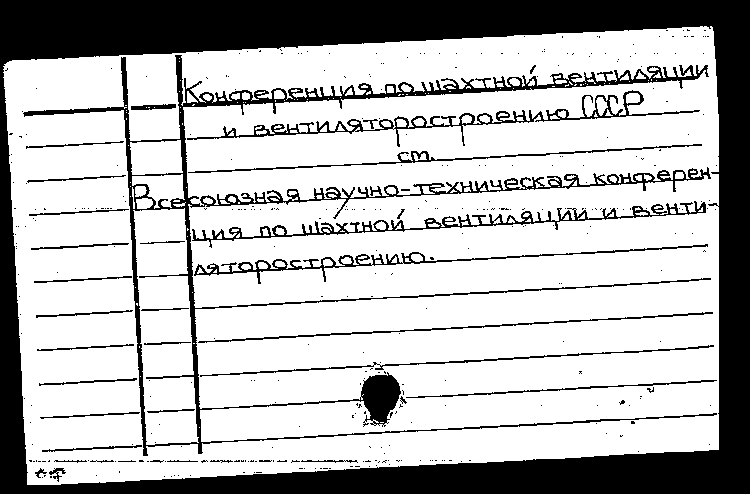 Конференция по шахтной вентиляции
и вентиляторостроению СССР
см.
Всесоюзная научно-техническая конферен-
ция по шахтной вентиляции и венти-
ляторостроению.